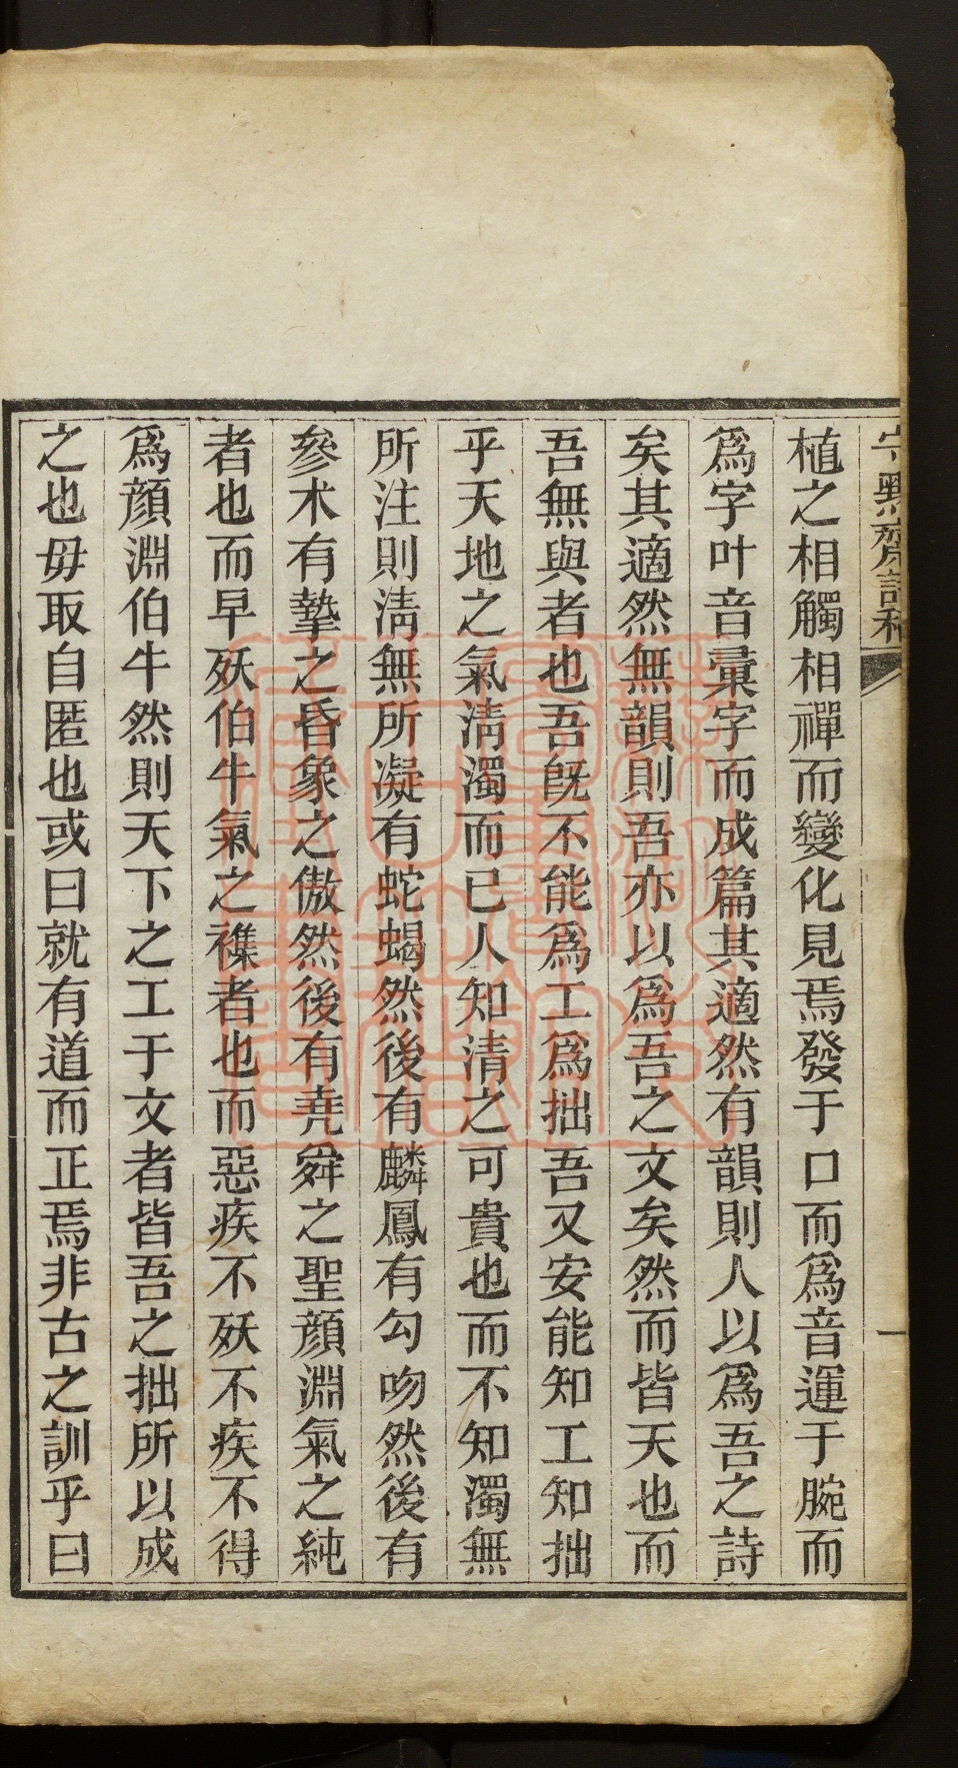 守默齋詩稿
一
植之相觸相禪而變化見焉發于口而爲音運于腕而
爲字叶音彙字而成篇其適然有韻則人以爲吾之詩
矣其適然無韻則吾亦以爲吾之文矣然而皆天也而
吾無與者也吾旣不能爲工爲拙吾又安能知工知拙
乎天地之氣淸濁而已人知清之可貴也而不知濁無
所注則淸無所凝有蛇蝎然後有麟鳳有勾吻然後有
參术有摯之昏象之傲然後有堯舜之聖顔淵氣之純
者也而早殀伯牛氣之襍者也而惡疾不殀不疾不得
爲顔淵伯牛然則天下之工于文者皆吾之拙所以成
之也毋取自匿也或曰就有道而正焉非古之訓乎曰